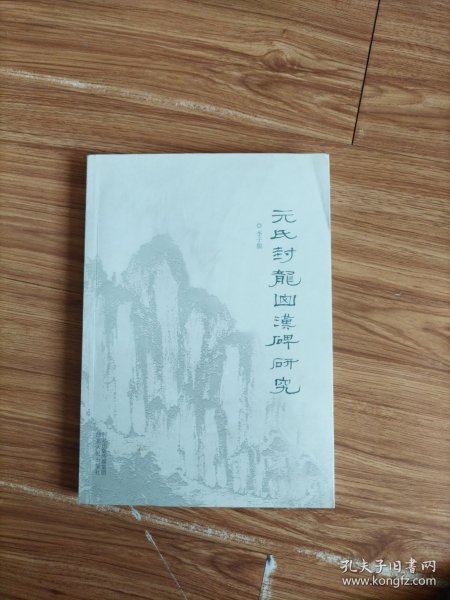 元氏封龍山漢碑研究
孔夫子旧书网
www.kongfz.com